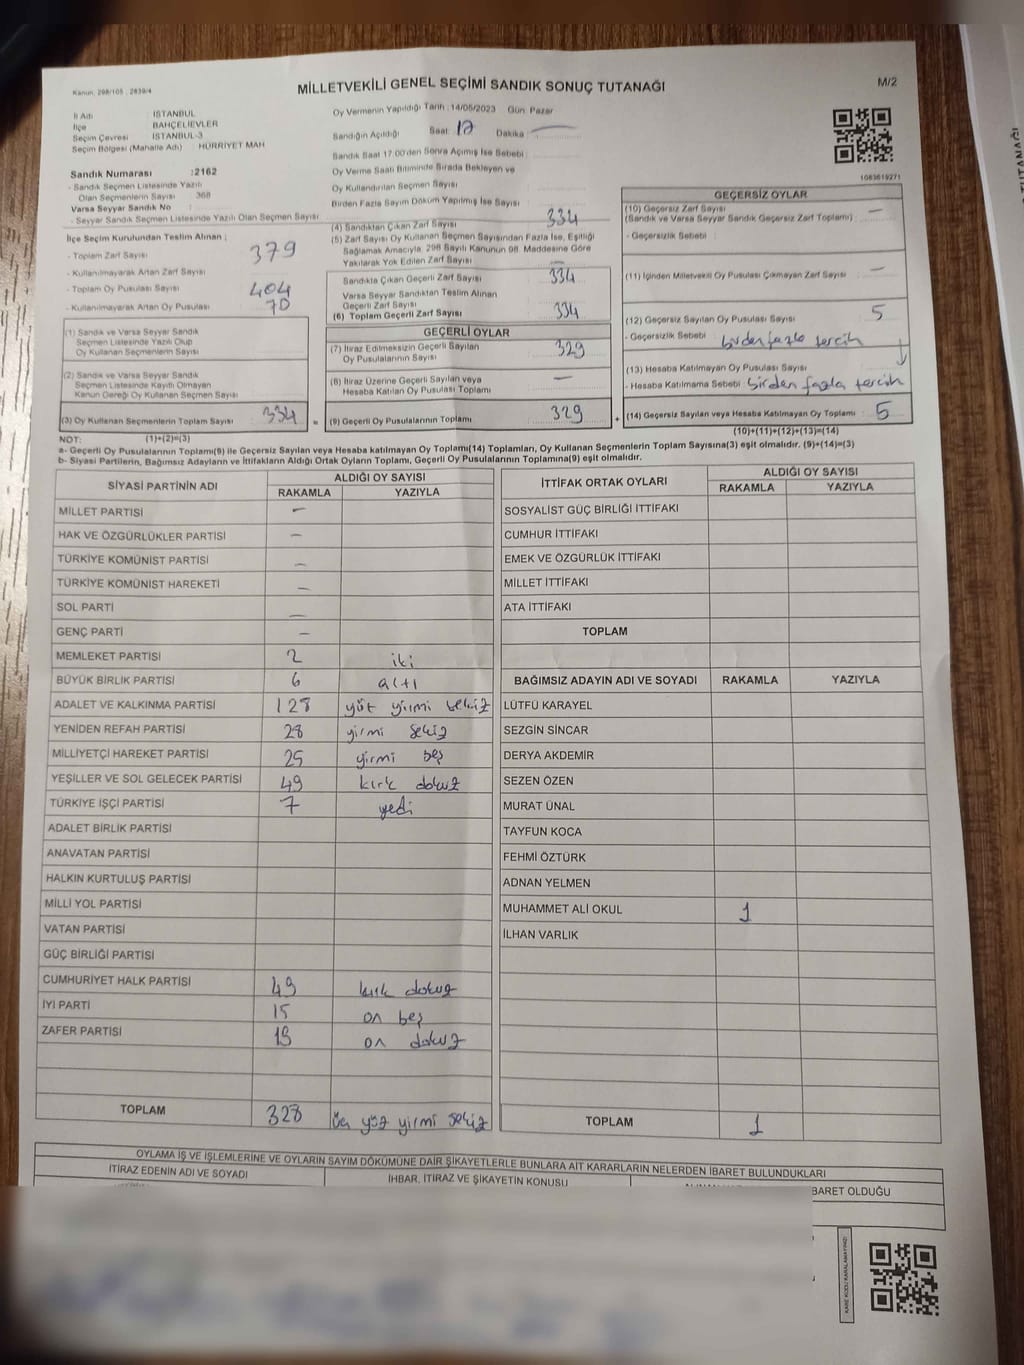 Kanun, 298/105 , 2839/4
MİLLETVEKİLİ GENEL SEÇİMİ SANDIK SONUÇ TUTANAĞI
M/2
İl Adı : İSTANBUL
İlçe : BAHÇELİEVLER
Seçim Çevresi : İSTANBUL-3
Seçim Bölgesi (Mahalle Adı) : HÜRRİYET MAH
Sandık Numarası :2162
- Sandık Seçmen Listesinde Yazılı
Olan Seçmenlerin Sayısı : 368
Varsa Seyyar Sandık No :
- Seyyar Sandık Seçmen Listesinde Yazılı Olan Seçmen Sayısı
Oy Vermenin Yapıldığı Tarih :14/05/2023 Gün: Pazar
Sandığın Açıldığı Saat: 17 Dakika: —
Sandık Saat 17:00'den Sonra Açılmış İse Sebebi :
Oy Verme Saati Bitiminde Sırada Bekleyen ve
Oy Kullandırılan Seçmen Sayısı :
Birden Fazla Sayım Döküm Yapılmış İse Sayısı :
1083619271
İlçe Seçim Kurulundan Teslim Alınan ;
- Toplam Zarf Sayısı : 379
- Kullanılmayarak Artan Zarf Sayısı :
- Toplam Oy Pusulası Sayısı : 404
- Kullanılmayarak Artan Oy Pusulası : 70
(1) Sandık ve Varsa Seyyar Sandık
Seçmen Listesinde Yazılı Olup
Oy Kullanan Seçmenlerin Sayısı
(2) Sandık ve Varsa Seyyar Sandık
Seçmen Listesinde Kayıtlı Olmayan
Kanun Gereği Oy Kullanan Seçmen Sayısı :
(3) Oy Kullanan Seçmenlerin Toplam Sayısı : 334
(4) Sandıktan Çıkan Zarf Sayısı : 334
(5) Zarf Sayısı Oy Kullanan Seçmen Sayısından Fazla İse, Eşitliği
Sağlamak Amacıyla, 298 Sayılı Kanunun 98. Maddesine Göre
Yakılarak Yok Edilen Zarf Sayısı : —
Sandıkta Çıkan Geçerli Zarf Sayısı : 334
Varsa Seyyar Sandıktan Teslim Alınan
Geçerli Zarf Sayısı :
(6) Toplam Geçerli Zarf Sayısı : 334
GEÇERLİ OYLAR
(7) İtiraz Edilmeksizin Geçerli Sayılan
Oy Pusulalarının Sayısı : 329
(8) İtiraz Üzerine Geçerli Sayılan veya
Hesaba Katılan Oy Pusulası Toplamı : —
= (9) Geçerli Oy Pusulalarının Toplamı : 329 +
GEÇERSİZ OYLAR
(10) Geçersiz Zarf Sayısı
(Sandık ve Varsa Seyyar Sandık Geçersiz Zarf Toplamı) : —
- Geçersizlik Sebebi :
(11) İçinden Milletvekili Oy Pusulası Çıkmayan Zarf Sayısı : —
(12) Geçersiz Sayılan Oy Pusulası Sayısı : 5
- Geçersizlik Sebebi : birden fazla tercih
(13) Hesaba Katılmayan Oy Pusulası Sayısı :
- Hesaba Katılmama Sebebi : birden fazla tercih
(14) Geçersiz Sayılan veya Hesaba Katılmayan Oy Toplamı : 5
NOT: (1)+(2)=(3)
(10)+(11)+(12)+(13)=(14)
a- Geçerli Oy Pusulalarının Toplamı(9) ile Geçersiz Sayılan veya Hesaba katılmayan Oy Toplamı(14) Toplamları, Oy Kullanan Seçmenlerin Toplam Sayısına(3) eşit olmalıdır. (9)+(14)=(3)
b- Siyasi Partilerin, Bağımsız Adayların ve İttifakların Aldığı Ortak Oyların Toplamı, Geçerli Oy Pusulalarının Toplamına(9) eşit olmalıdır.
SİYASİ PARTİNİN ADI
ALDIĞI OY SAYISI
RAKAMLA YAZIYLA
MİLLET PARTİSİ —
HAK VE ÖZGÜRLÜKLER PARTİSİ —
TÜRKİYE KOMÜNİST PARTİSİ —
TÜRKİYE KOMÜNİST HAREKETİ —
SOL PARTİ —
GENÇ PARTİ —
MEMLEKET PARTİSİ 2 iki
BÜYÜK BİRLİK PARTİSİ 6 altı
ADALET VE KALKINMA PARTİSİ 128 yüz yirmi sekiz
YENİDEN REFAH PARTİSİ 28 yirmi sekiz
MİLLİYETÇİ HAREKET PARTİSİ 25 yirmi beş
YEŞİLLER VE SOL GELECEK PARTİSİ 49 kırk dokuz
TÜRKİYE İŞÇİ PARTİSİ 7 yedi
ADALET BİRLİK PARTİSİ
ANAVATAN PARTİSİ
HALKIN KURTULUŞ PARTİSİ
MİLLİ YOL PARTİSİ
VATAN PARTİSİ
GÜÇ BİRLİĞİ PARTİSİ
CUMHURİYET HALK PARTİSİ 49 kırk dokuz
İYİ PARTİ 15 on beş
ZAFER PARTİSİ 19 on dokuz
TOPLAM 328 üç yüz yirmi sekiz
İTTİFAK ORTAK OYLARI
ALDIĞI OY SAYISI
RAKAMLA YAZIYLA
SOSYALİST GÜÇ BİRLİĞİ İTTİFAKI
CUMHUR İTTİFAKI
EMEK VE ÖZGÜRLÜK İTTİFAKI
MİLLET İTTİFAKI
ATA İTTİFAKI
TOPLAM
BAĞIMSIZ ADAYIN ADI VE SOYADI RAKAMLA YAZIYLA
LÜTFÜ KARAYEL
SEZGİN SİNCAR
DERYA AKDEMİR
SEZEN ÖZEN
MURAT ÜNAL
TAYFUN KOCA
FEHMİ ÖZTÜRK
ADNAN YELMEN
MUHAMMET ALİ OKUL 1
İLHAN VARLIK
TOPLAM 1
OYLAMA İŞ VE İŞLEMLERİNE VE OYLARIN SAYIM DÖKÜMÜNE DAİR ŞİKAYETLERLE BUNLARA AİT KARARLARIN NELERDEN İBARET BULUNDUKLARI
İTİRAZ EDENİN ADI VE SOYADI
İHBAR, İTİRAZ VE ŞİKAYETİN KONUSU
İBARET OLDUĞU
KARE KODU KARALAMAYINIZ!
TUTANAĞI